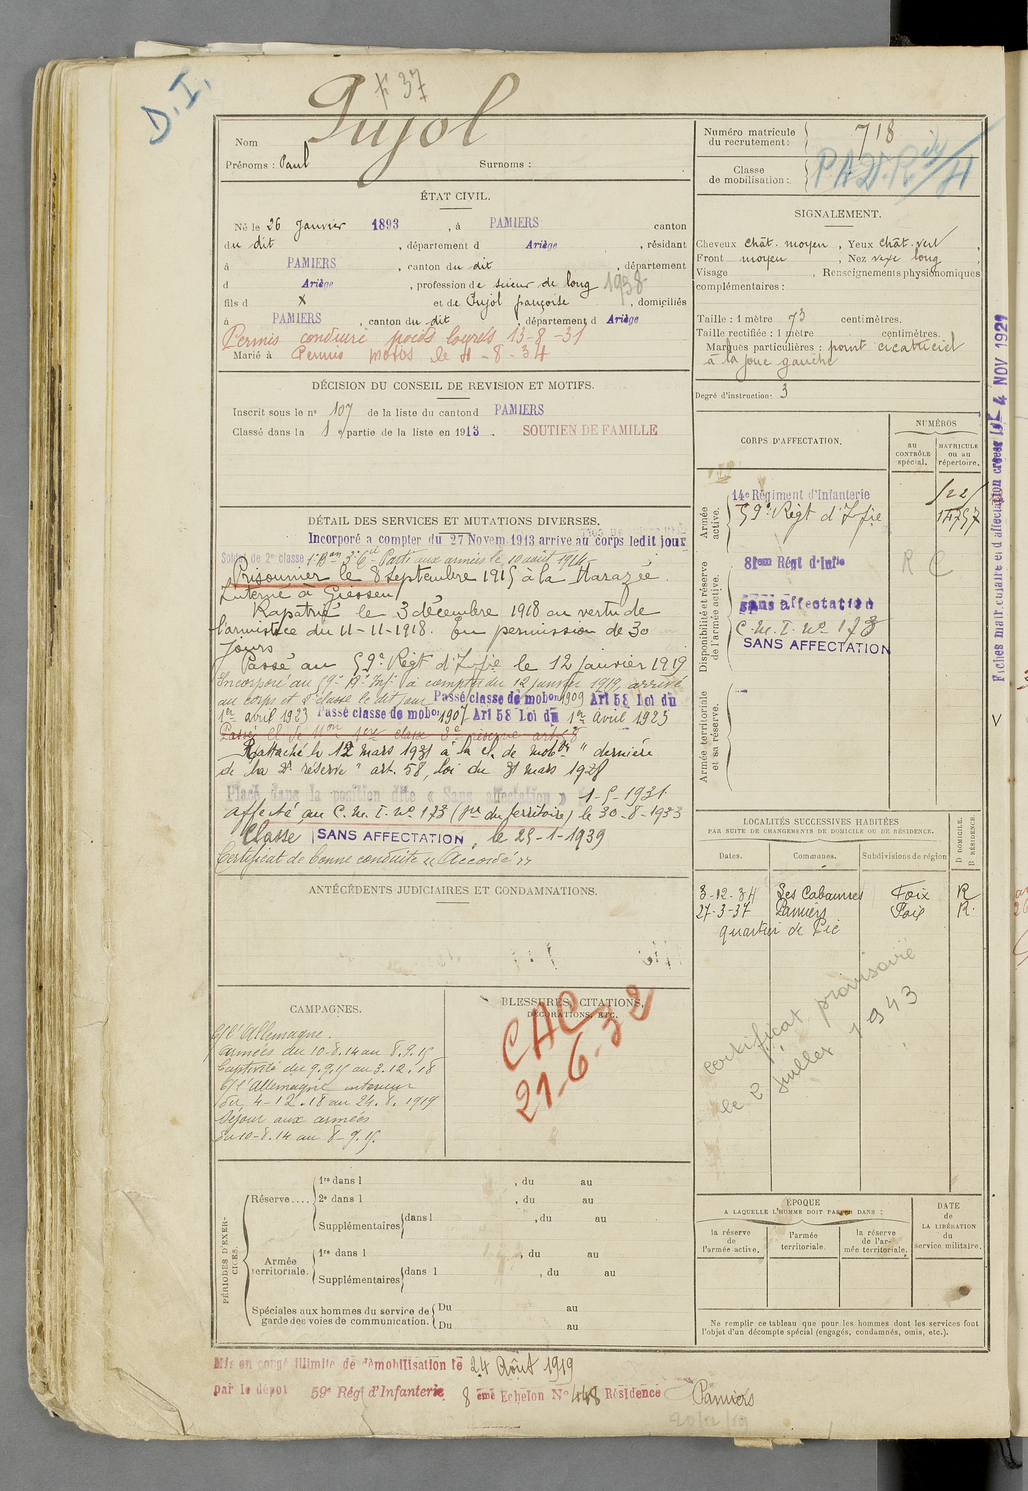 D.I.
F 37
Nom Pujol
Prénoms : Paul Surnoms :
ÉTAT CIVIL.
Né le 26 Janvier 1893, à PAMIERS canton
du dit, département d Ariège, résidant
à PAMIERS, canton du dit, département
d Ariège, profession de scieur de long 1938
fils d X et de Pujol françoise, domiciliés
à PAMIERS, canton du dit, département d Ariège
Permis conduire poids lourds 13-8-31
Marié à Permis motos le 4-8-34
DÉCISION DU CONSEIL DE REVISION ET MOTIFS.
Inscrit sous le n° 107 de la liste du canton d PAMIERS
Classé dans la 1e partie de la liste en 1913. SOUTIEN DE FAMILLE
DÉTAIL DES SERVICES ET MUTATIONS DIVERSES.
Incorporé a compter du 27 Novem. 1913 arrive au corps ledit jour
Soldat de 2e classe Parti aux armées le 10 août 1914
Prisonnier le 8 septembre 1915 à la Harazée.
Interné à Giessen
Rapatrié le 3 décembre 1918 en vertu de
l'armistice du 11-11-1918. En permission de 30
jours
Passé au 59e Régt d'Ifie le 12 janvier 1919
Incorporé au 59e Rt Inf. à compter du 12 janvier 1919, arrivé
au corps et 2e classe le dit jour Passé classe de mobon 1909 Art 58 Loi du
1er avril 1923 Passé classe de mobon 1907 Art 58 Loi du 1er Avril 1923
Rattaché le 12 mars 1931 à la cl. de mobon " dernière
de la 2e réserve " art. 58, loi du 31 mars 1928
Placé dans la position dite « Sans affectation » 1-5-1931
affecté au C.M.I. No 173 le 30-8-1933
Classé SANS AFFECTATION, le 25-1-1939
Certificat de bonne conduite " Accordé "
ANTÉCÉDENTS JUDICIAIRES ET CONDAMNATIONS.
CAMPAGNES.
C/ l'Allemagne.
Armées du 10.8.14 au 8.9.15
Captivité du 9.9.15 au 3.12.18
C/ l'Allemagne intérieur
du 4-12.18 au 24.8.1919
Séjour aux armées
du 10-8.14 au 8-9.15.
BLESSURES, CITATIONS,
DÉCORATIONS, ETC.
CAC
21-6-32
PÉRIODES D'EXERCICES.
Réserve.... 1re dans l , du au
2e dans l , du au
Supplémentaires dans l , du au
Armée territoriale. 1re dans l , du au
Supplémentaires dans l , du au
Spéciales aux hommes du service de garde des voies de communication. Du au
Du au
Mis en congé illimité de démobilisation le 24 Août 1919
par le dépot 59e Régt d'Infanterie 8 ème Echelon N° 448 Résidence Pamiers
Numéro matricule du recrutement : 718
Classe de mobilisation :
SIGNALEMENT.
Cheveux chât. moyen, Yeux chât. vert,
Front moyen, Nez vexe long,
Visage , Renseignements physionomiques
complémentaires :
Taille : 1 mètre 73 centimètres.
Taille rectifiée : 1 mètre centimètres.
Marques particulières : point cicatriciel
à la joue gauche
Degré d'instruction : 3
CORPS D'AFFECTATION.
NUMÉROS
au CONTRÔLE spécial.
MATRICULE ou au répertoire.
Armée active.
14e Régiment d'Infanterie
59e Régt d'Ifie
Disponibilité et réserve de l'armée active.
81em Régt d'Infie
R C
sans affectation
C.M.I. No 173
SANS AFFECTATION
Armée territoriale et sa réserve.
LOCALITÉS SUCCESSIVES HABITÉES
PAR SUITE DE CHANGEMENTS DE DOMICILE OU DE RÉSIDENCE.
Dates. Communes. Subdivisions de région D DOMICILE. R RÉSIDENCE.
3-12-34 Les Cabannes Foix R
27-3-37 Pamiers Foix R.
quartier de Pic
certificat provisoire
le 2 Juillet 1943
ÉPOQUE
A LAQUELLE L'HOMME DOIT PASSER DANS :
la réserve de l'armée active.
l'armée territoriale.
la réserve de l'armée territoriale.
DATE de LA LIBÉRATION du service militaire.
Ne remplir ce tableau que pour les hommes dont les services font
l'objet d'un décompte spécial (engagés, condamnés, omis, etc.).
Fiches matriculaire et d'affectation créées le 4 NOV 1929